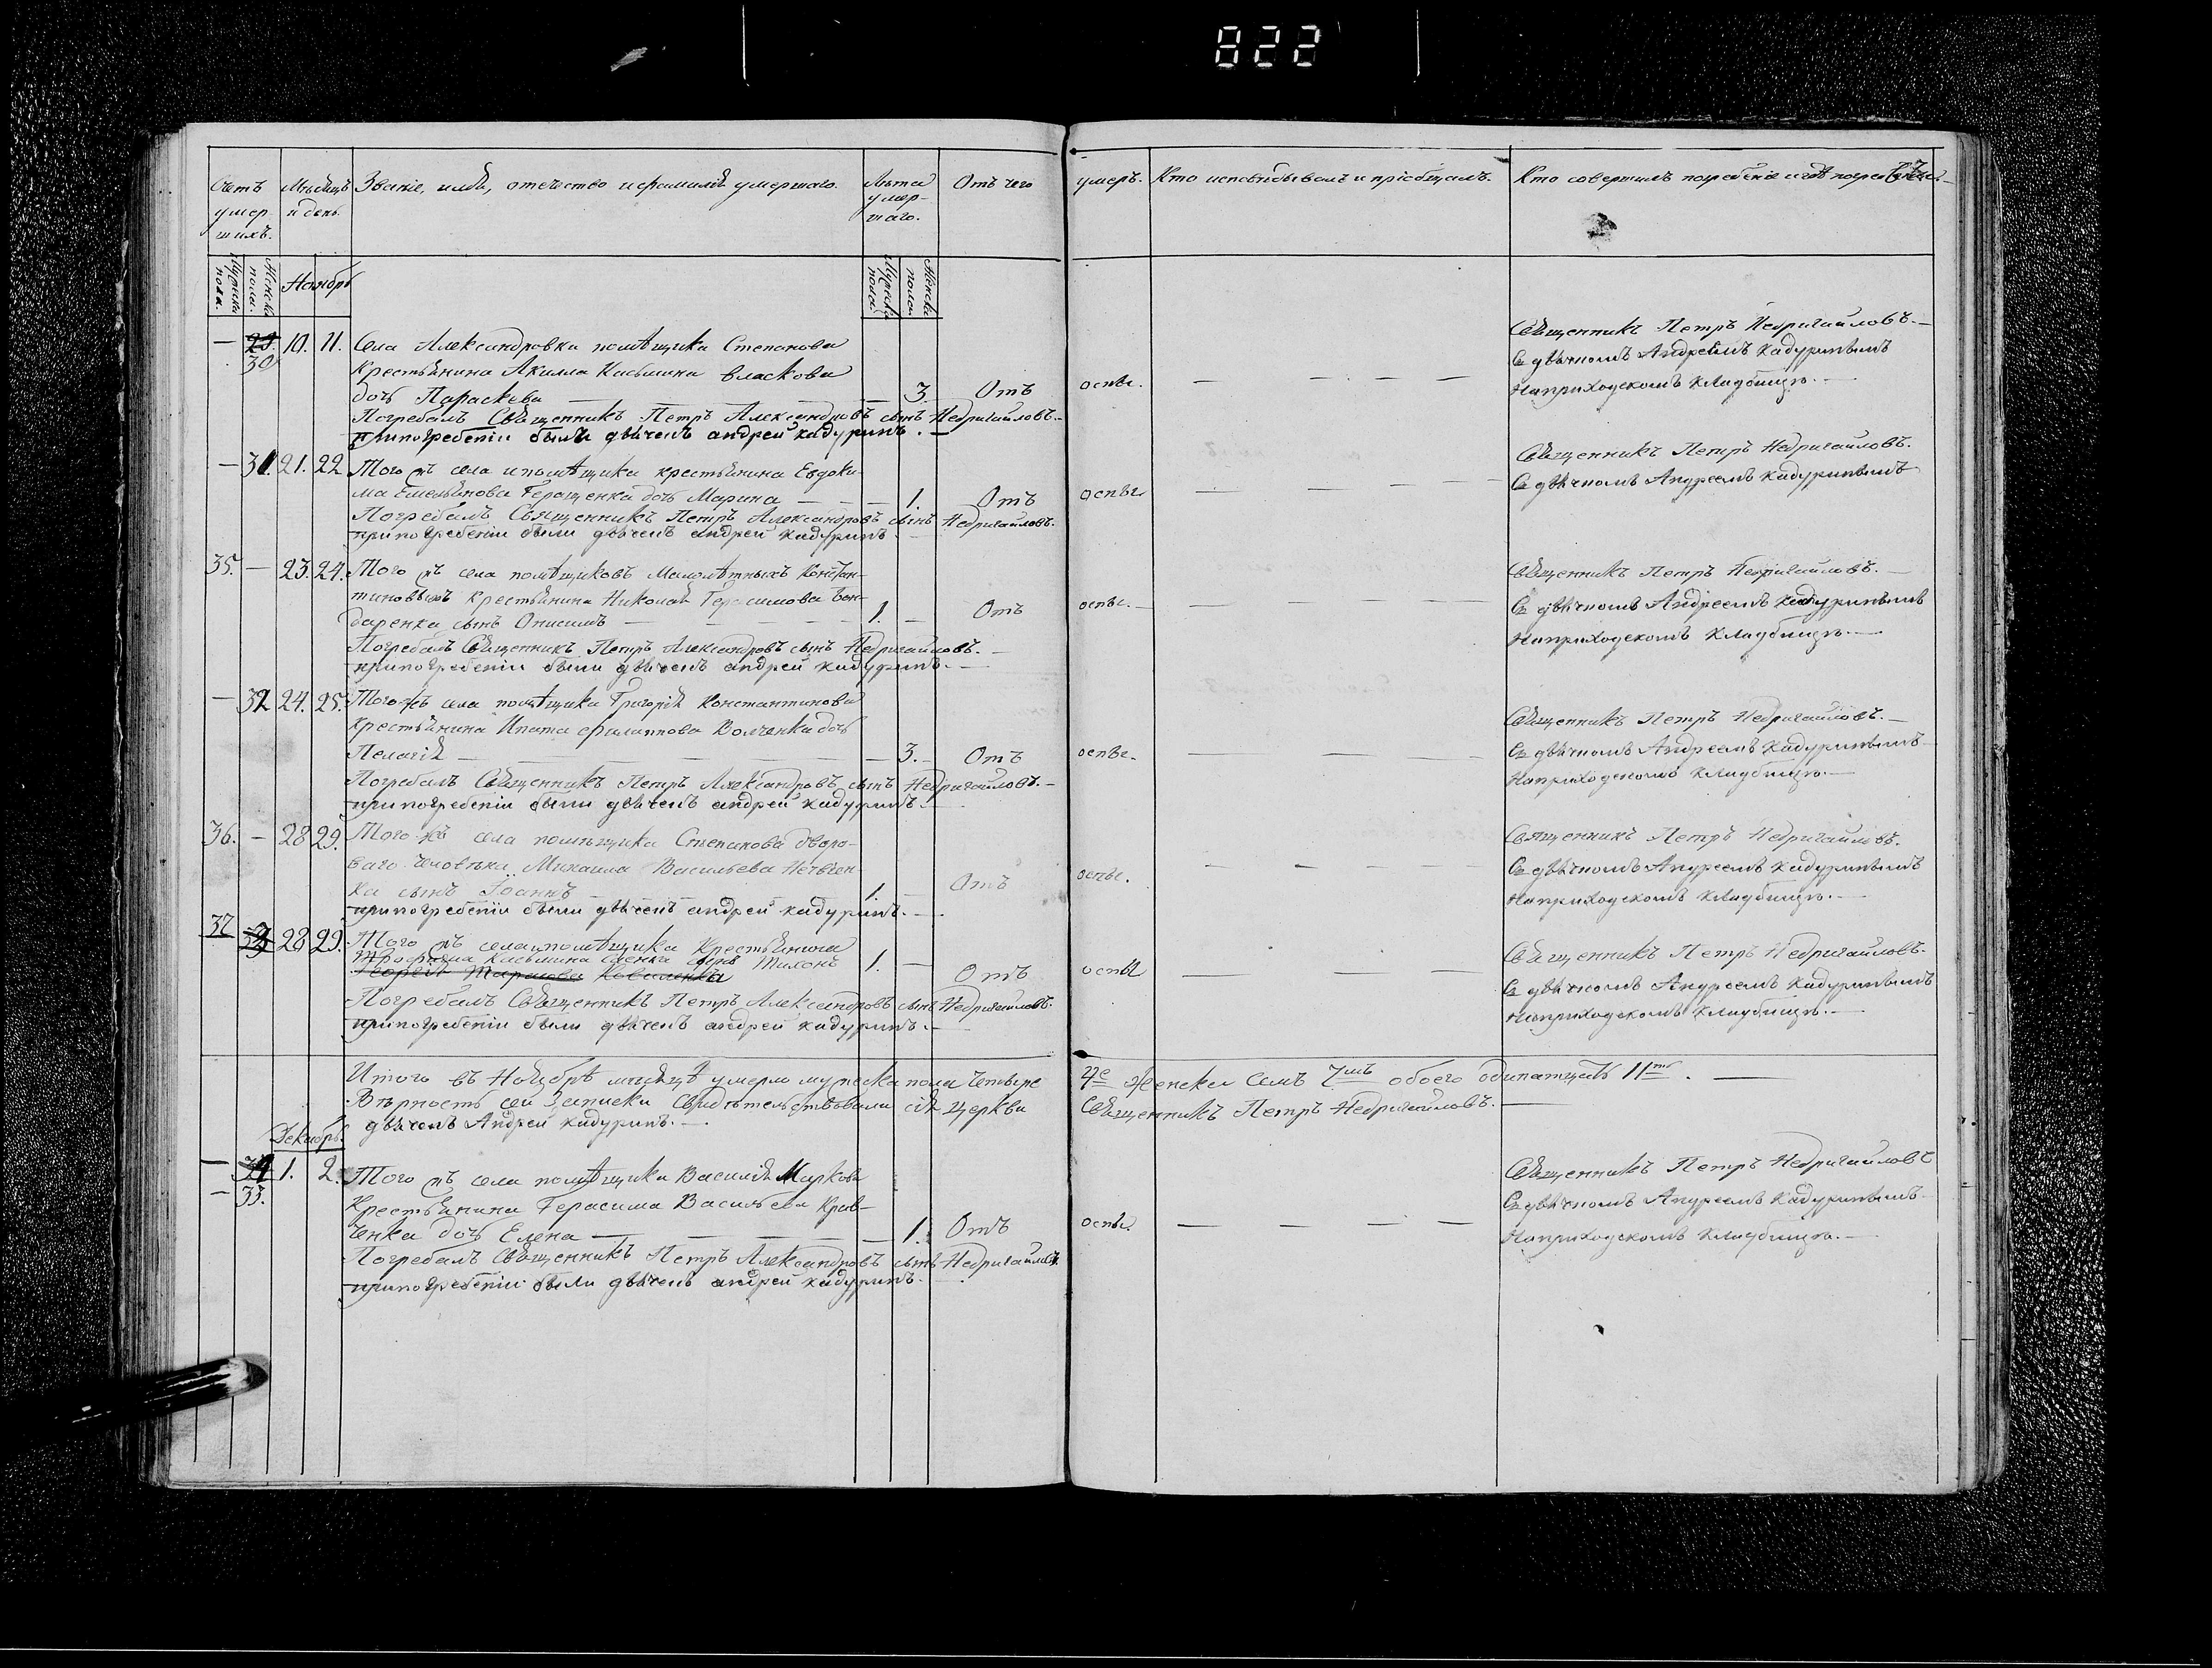 822
Счетъ умер- шихъ. Мѣсяцъ и день. Званіе, имя, отечество и фамилія умершаго. Лѣта умер- шаго. Отъ чего умеръ. Кто исповѣдывалъ и пріобщалъ. Кто совершилъ погребеніе и гдѣ погребенъ
Мужеска пола. Женска пола. Ноябрь Мужеска пола. Женска пола.
— 30 10. 11. Села Александровки помѣщика Степанова
Крестьянина Акима Касьмина Власкова
дочь Параскева — 3. Отъ оспы.
Погребалъ Священникъ Петръ Александровъ сынъ Недригайловъ.
при погребеніи были дьячекъ андрей кадуринъ.
Священникъ Петръ Недригайловъ.
Съ дьячкомъ Андреемъ Кадуринымъ
На приходскомъ кладбищѣ.
— 31. 21. 22 Того жъ села и помѣщика крестьянина Евдоки-
ма Емельянова Геращенка дочь Марина — 1. Отъ оспы
Погребалъ Священникъ Петръ Александровъ сынъ Недригайловъ.
при погребеніи были дьячекъ андрей кадуринъ.
Священникъ Петръ Недригайловъ.
Съ дьячкомъ Андреемъ Кадуринымъ
35. — 23. 24. Того жъ села помѣщиковъ Малолѣтныхъ Констан-
тиновыхъ Крестьянина Николая Герасимова Бон-
даренка сынъ Онисимъ — 1. — Отъ оспы.
Погребалъ Священникъ Петръ Александровъ сынъ Недригайловъ.
при погребеніи были дьячекъ андрей кадуринъ.
Священникъ Петръ Недригайловъ.
Съ дьячкомъ Андреемъ Кадуринымъ
На приходскомъ кладбищѣ.
— 32 24. 25. Того жъ села помѣщика Григорія Константинова
крестьянина Ипата Филиппова Волченка дочь
Пелагія — 3. Отъ оспы.
Погребалъ Священникъ Петръ Александровъ сынъ Недригайловъ.
при погребеніи были дьячекъ андрей кадуринъ.
Священникъ Петръ Недригайловъ.
Съ дьячкомъ Андреемъ Кадуринымъ
На приходскомъ кладбищѣ.
36. — 28 29. Того жъ села помѣщика Степанова дворо-
ваго человѣка Михаила Васильева
ка сынъ Іоаннъ — 1. — Отъ оспы.
при погребеніи были дьячекъ андрей кадуринъ.
Священникъ Петръ Недригайловъ.
Съ дьячкомъ Андреемъ Кадуринымъ
На приходскомъ кладбищѣ.
37 28 29. Того жъ села и помѣщика Крестьянина
Трофима Касьмина сынъ Тихонъ 1. —
Тарасова Коваленка Отъ оспы
Погребалъ Священникъ Петръ Александровъ сынъ Недригайловъ.
при погребеніи были дьячекъ андрей кадуринъ.
Священникъ Петръ Недригайловъ.
Съ дьячкомъ Андреемъ Кадуринымъ
На приходскомъ кладбищѣ.
Итого въ Ноябрѣ мѣсяцѣ умерло мужеска пола четыре 4е женска семь 7мь обоего одинатцать 11ть.
Вѣрность сей записки свидѣтельствовали сія церкви Священникъ Петръ Недригайловъ.
дьячекъ Андрей Кадуринъ.
Декабрь.
— 33. 1. 2. Того жъ села помѣщика Василія Маркова
Крестьянина Герасима Васильева Крав-
ченка дочь Елена — 1. Отъ оспы.
Погребалъ Священникъ Петръ Александровъ сынъ Недригайловъ.
при погребеніи были дьячекъ андрей кадуринъ.
Священникъ Петръ Недригайловъ
Съ дьячкомъ Андреемъ Кадуринымъ.
На приходскомъ кладбищѣ.